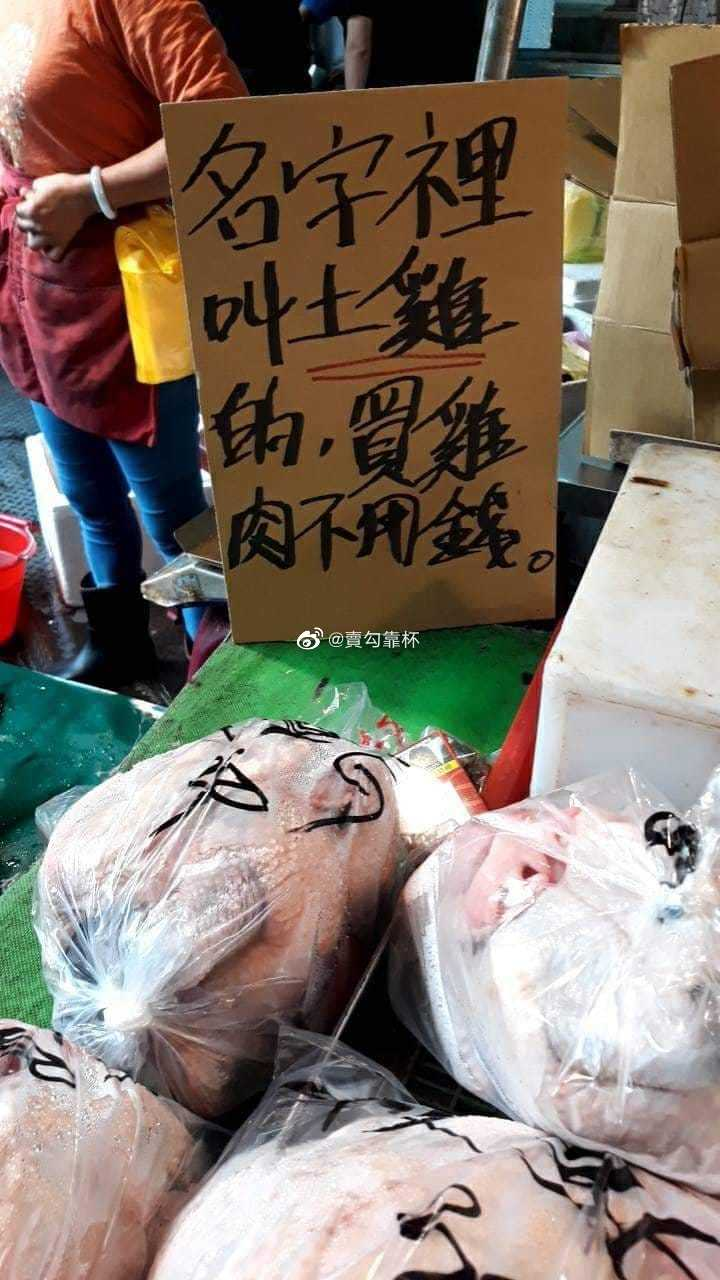 名字裡
叫土雞
的，買雞
肉不用錢。
@賣勾靠杯